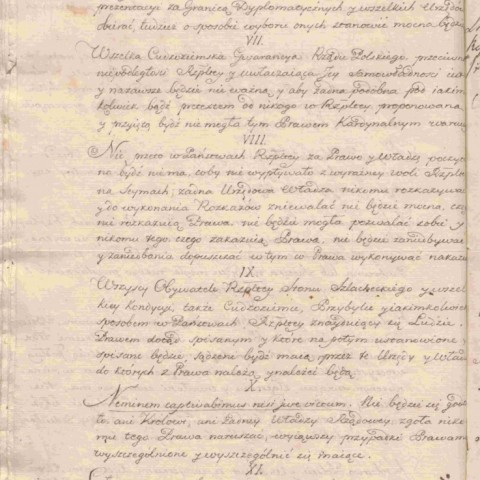 prezentacyi za Granicą Dyplomatycznych y wszelkich Urzędo
dzierać, tudzież o sposobie wyboru onych stanowić mocna będzie
VII.
Wszelka Cudzoziemska Gwarancya Rządu Polskiego, przeciwna
niepodległosci Rzplitey y uwłaczaiąca Jey Samowładnosci iest
y nazawsze będzie nie ważną, y aby żadna podobna pod iakim
kolwiek bądź pretextem do nikogo w Rzplitey, proponowaną
y przyiętą bydź nie mogła tym Prawem Kardynalnym waruie
VIII.
Nic przeto w Państwach Rzplitey za Prawo y Władzę poczyta
no bydź nie ma, coby nie wypływało z wyraźney woli Rzplitey
na Seymach; żadna Urzędowa Władza nikomu rozkazywać
y do wykonania Rozkazów zniewalać nie będzie mocna, czego
nie rozkazuią Prawa, nie będzie mogła pozwalać sobie y
nikomu tego czego zakazuią Prawa, nie będzie zaniedbywać
y zaniedbania dopuszczać w tym co Prawa wykonywać nakazuią
IX.
Wszyscy Obywatele Rzplitey Stanu Szlacheckiego y wszel
kiey Kondycyi, także Cudzoziemcy, Przybylcy y iakimkolwiek
sposobem w Państwach Rzplitey znayduiący się Ludzie,
Prawem dotąd spisanym y które na potym ustanowione,
spisane będzie, sądzeni bydź maią przez te Urzędy y Władze
do których z Prawa należą y należeć będą.
X.
Neminem captivabimus nisi jure victum. Nie będzie się godzi
ło, ani Królowi, ani żadney Władzy Rządowey, zgoła niko
mu tego Prawa naruszać, wyiąwszy przypadki Prawami
wyszczególnione y wyszczególnić się maiące.
XI.